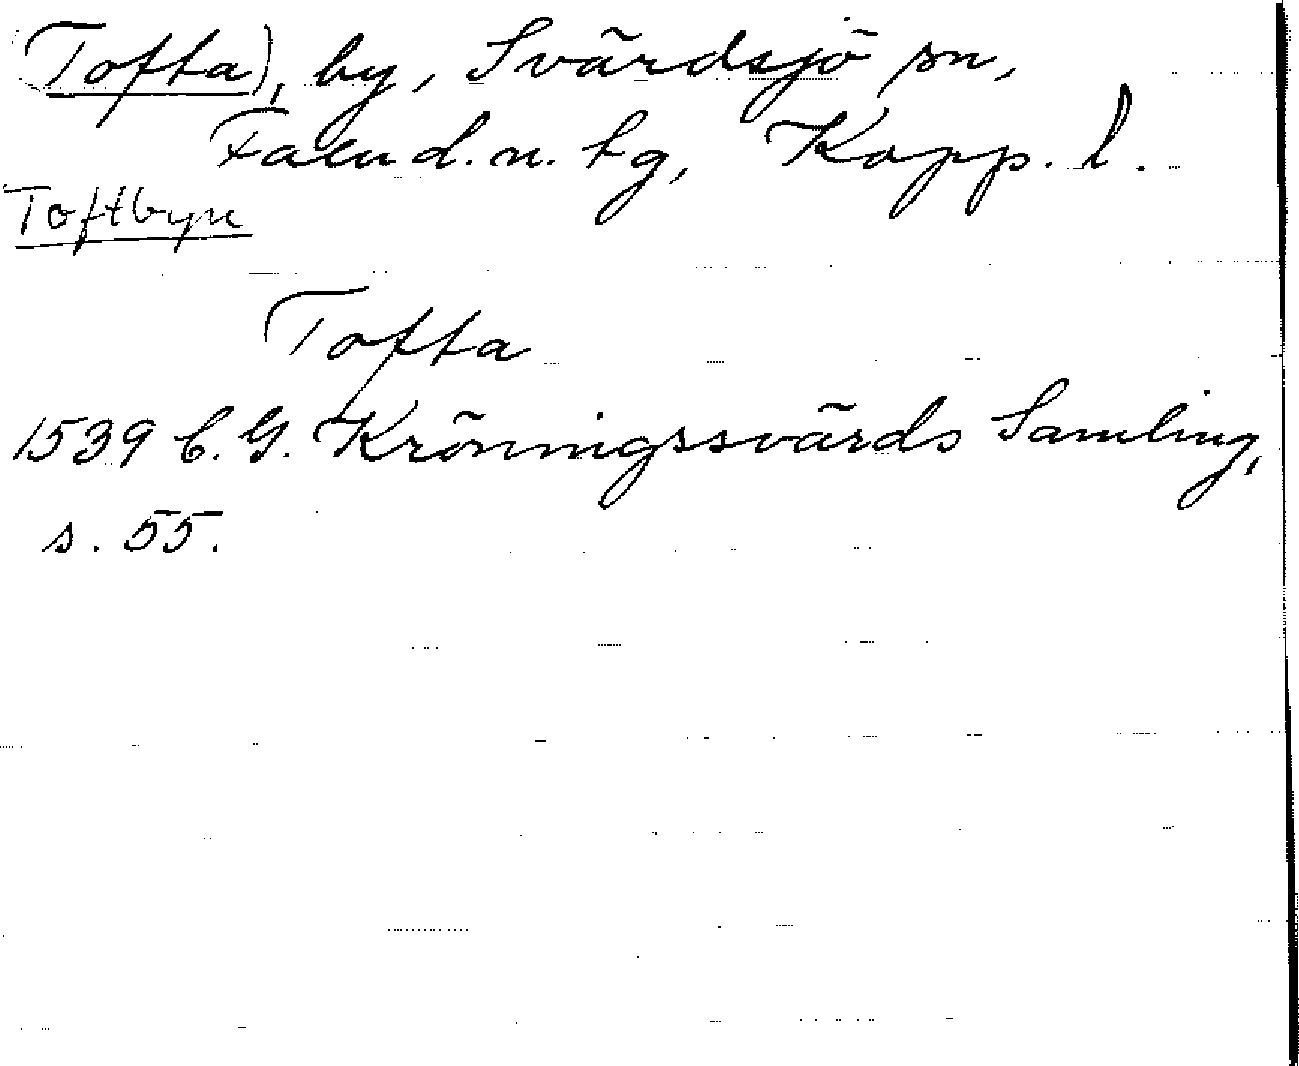 (Tofta), by, Svärdsjö sn,
Falu d.n. tg, Kopp. l.
Toftbyn
Tofta
1539 C. G. Kröningssvärds Samling,
s. 55.